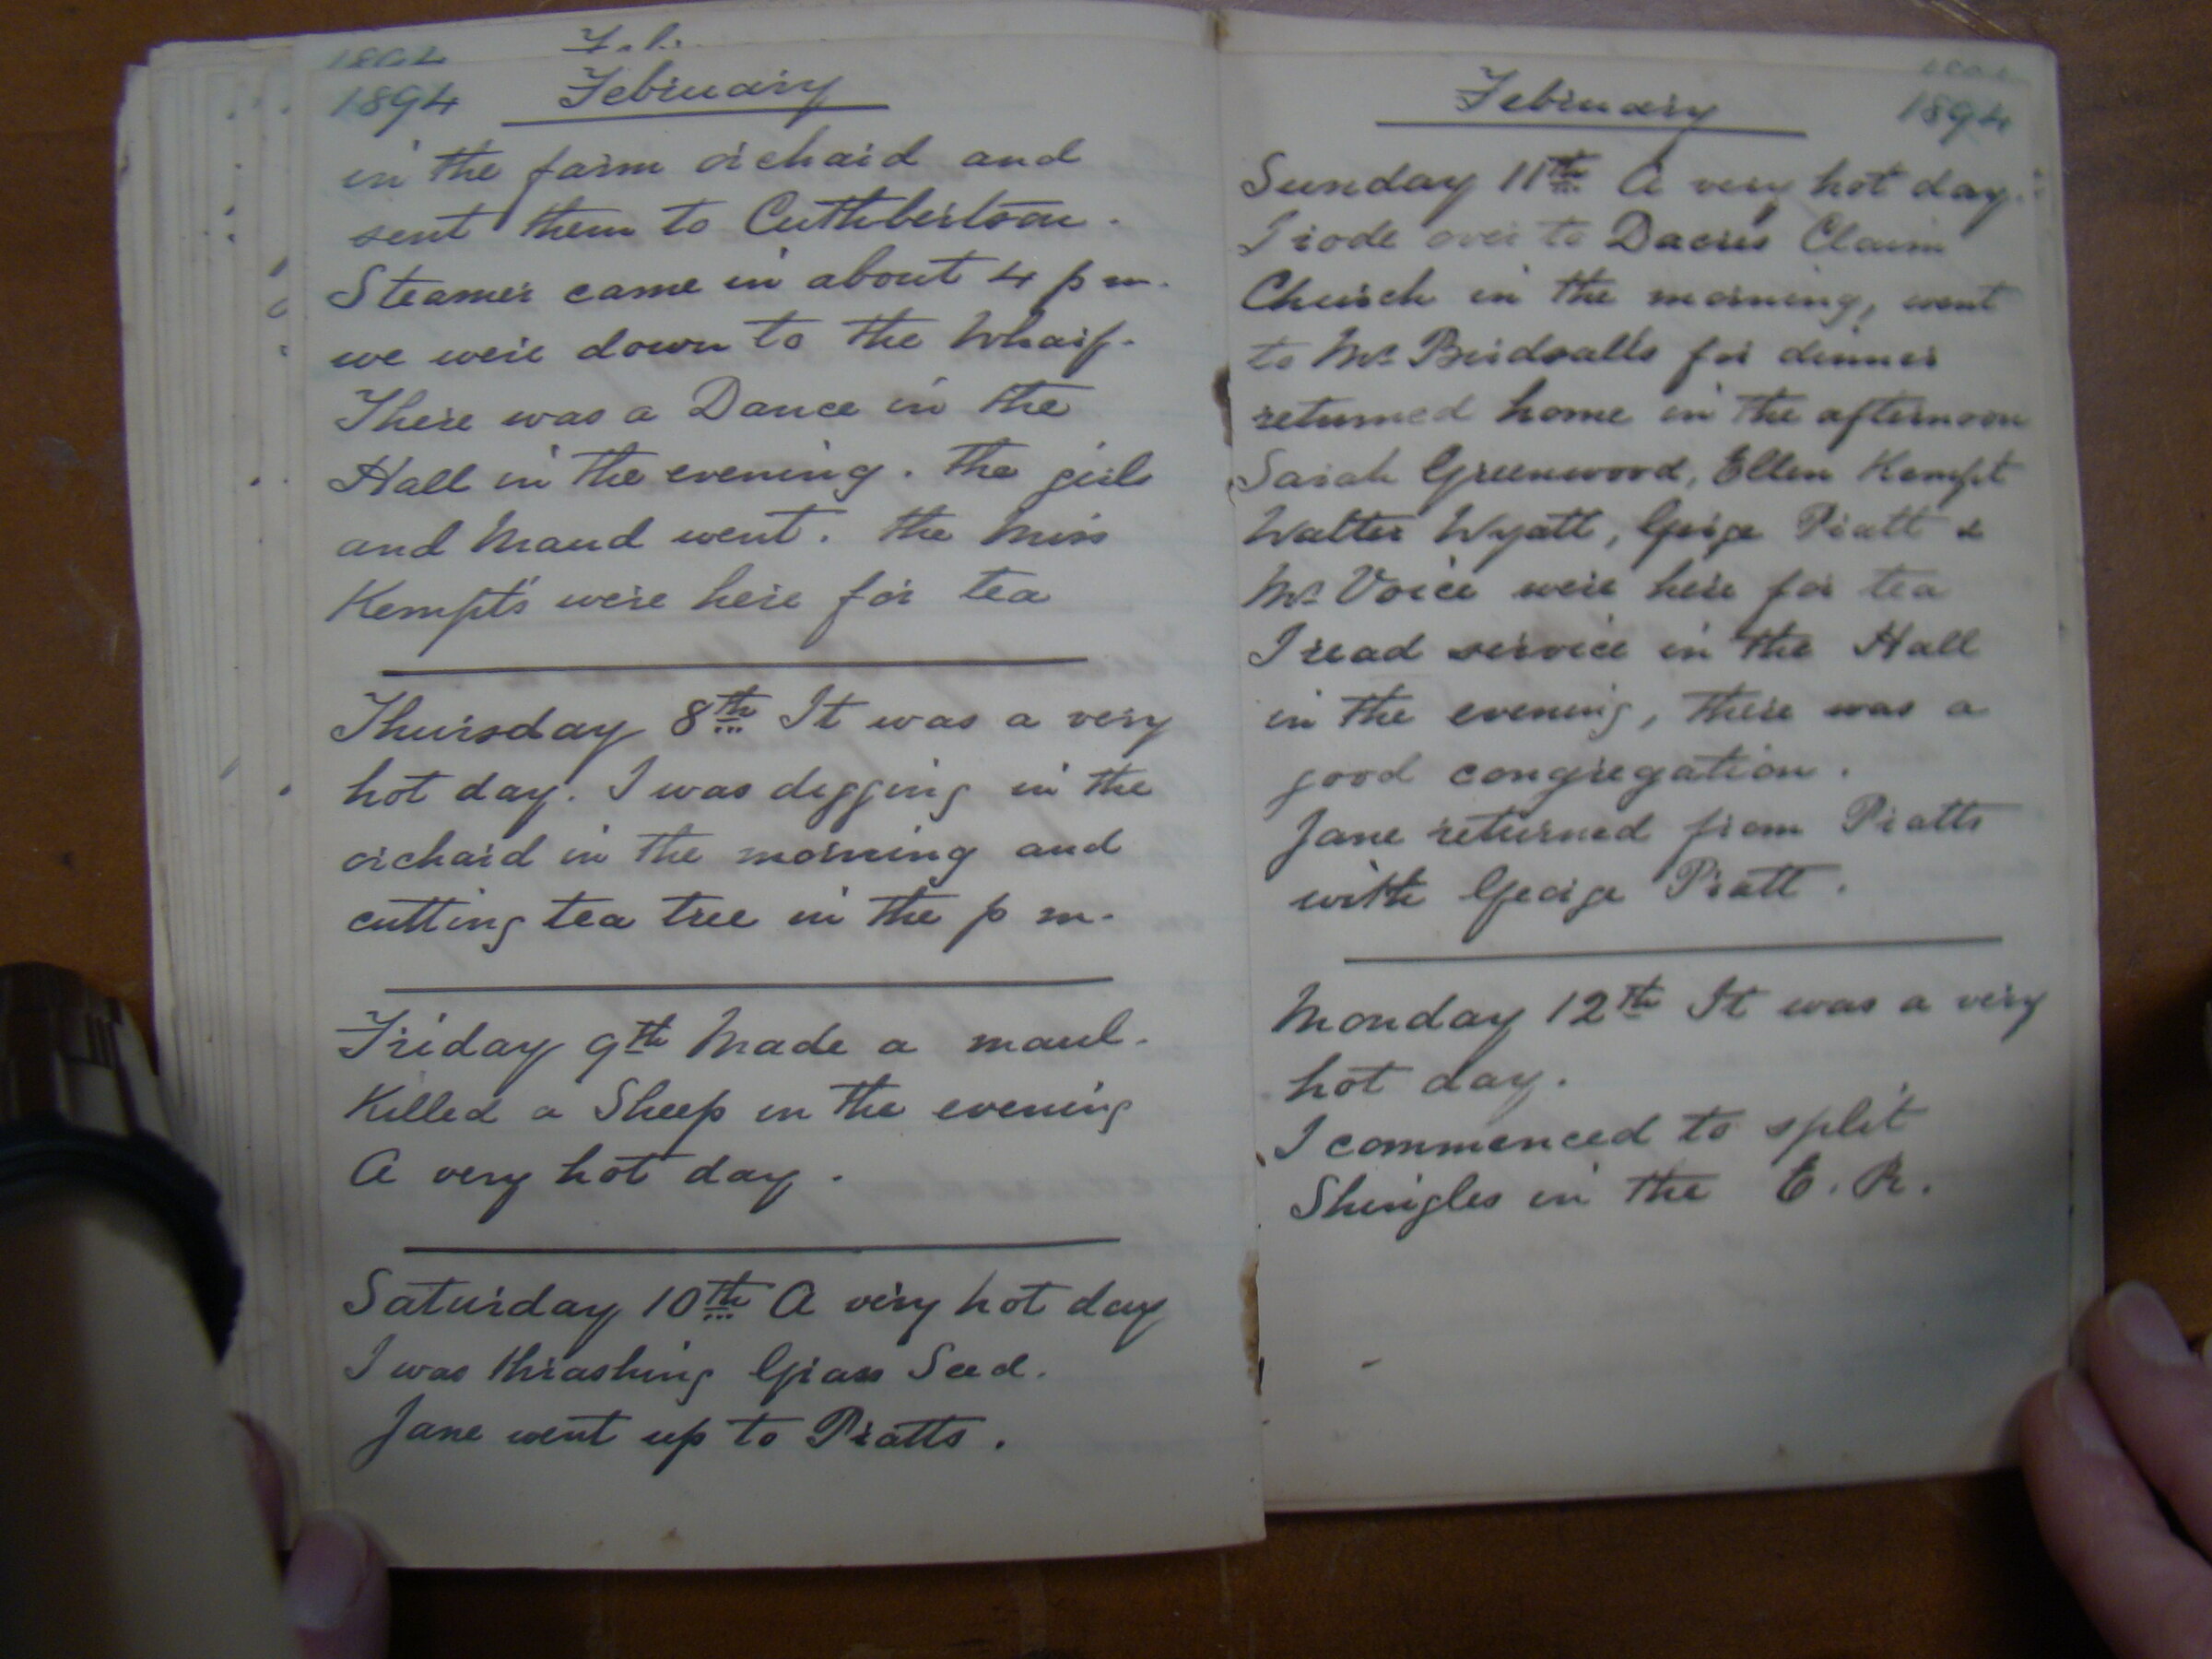 1894 February
in the farm orchard and
sent them to Cuthbertson.
Steamer came in about 4 p m.
we were down to the Wharf.
There was a Dance in the
Hall in the evening. The girls
and Maud went. The Miss
Kempt's were here for tea
Thursday 8th It was a very
hot day. I was digging in the
orchard in the morning and
cutting tea tree in the p m.
Friday 9th Made a maul.
Killed a Sheep in the evening
A very hot day.
Saturday 10th A very hot day
I was thrashing Grass Seed.
Jane went up to Pratts.
February 1894
Sunday 11th A very hot day.
I rode over to Dacres Claim
Church in the morning, went
to Mr Birdsall's for dinner
returned home in the afternoon
Sarah Greenwood, Ellen Kempt
Walter Wyatt, George Pratt &
Mr Voice were here for tea
I read service in the Hall
in the evening, there was a
good congregation.
Jane returned from Pratts
with George Pratt.
Monday 12th It was a very
hot day.
I commenced to split
Shingles in the E. R.